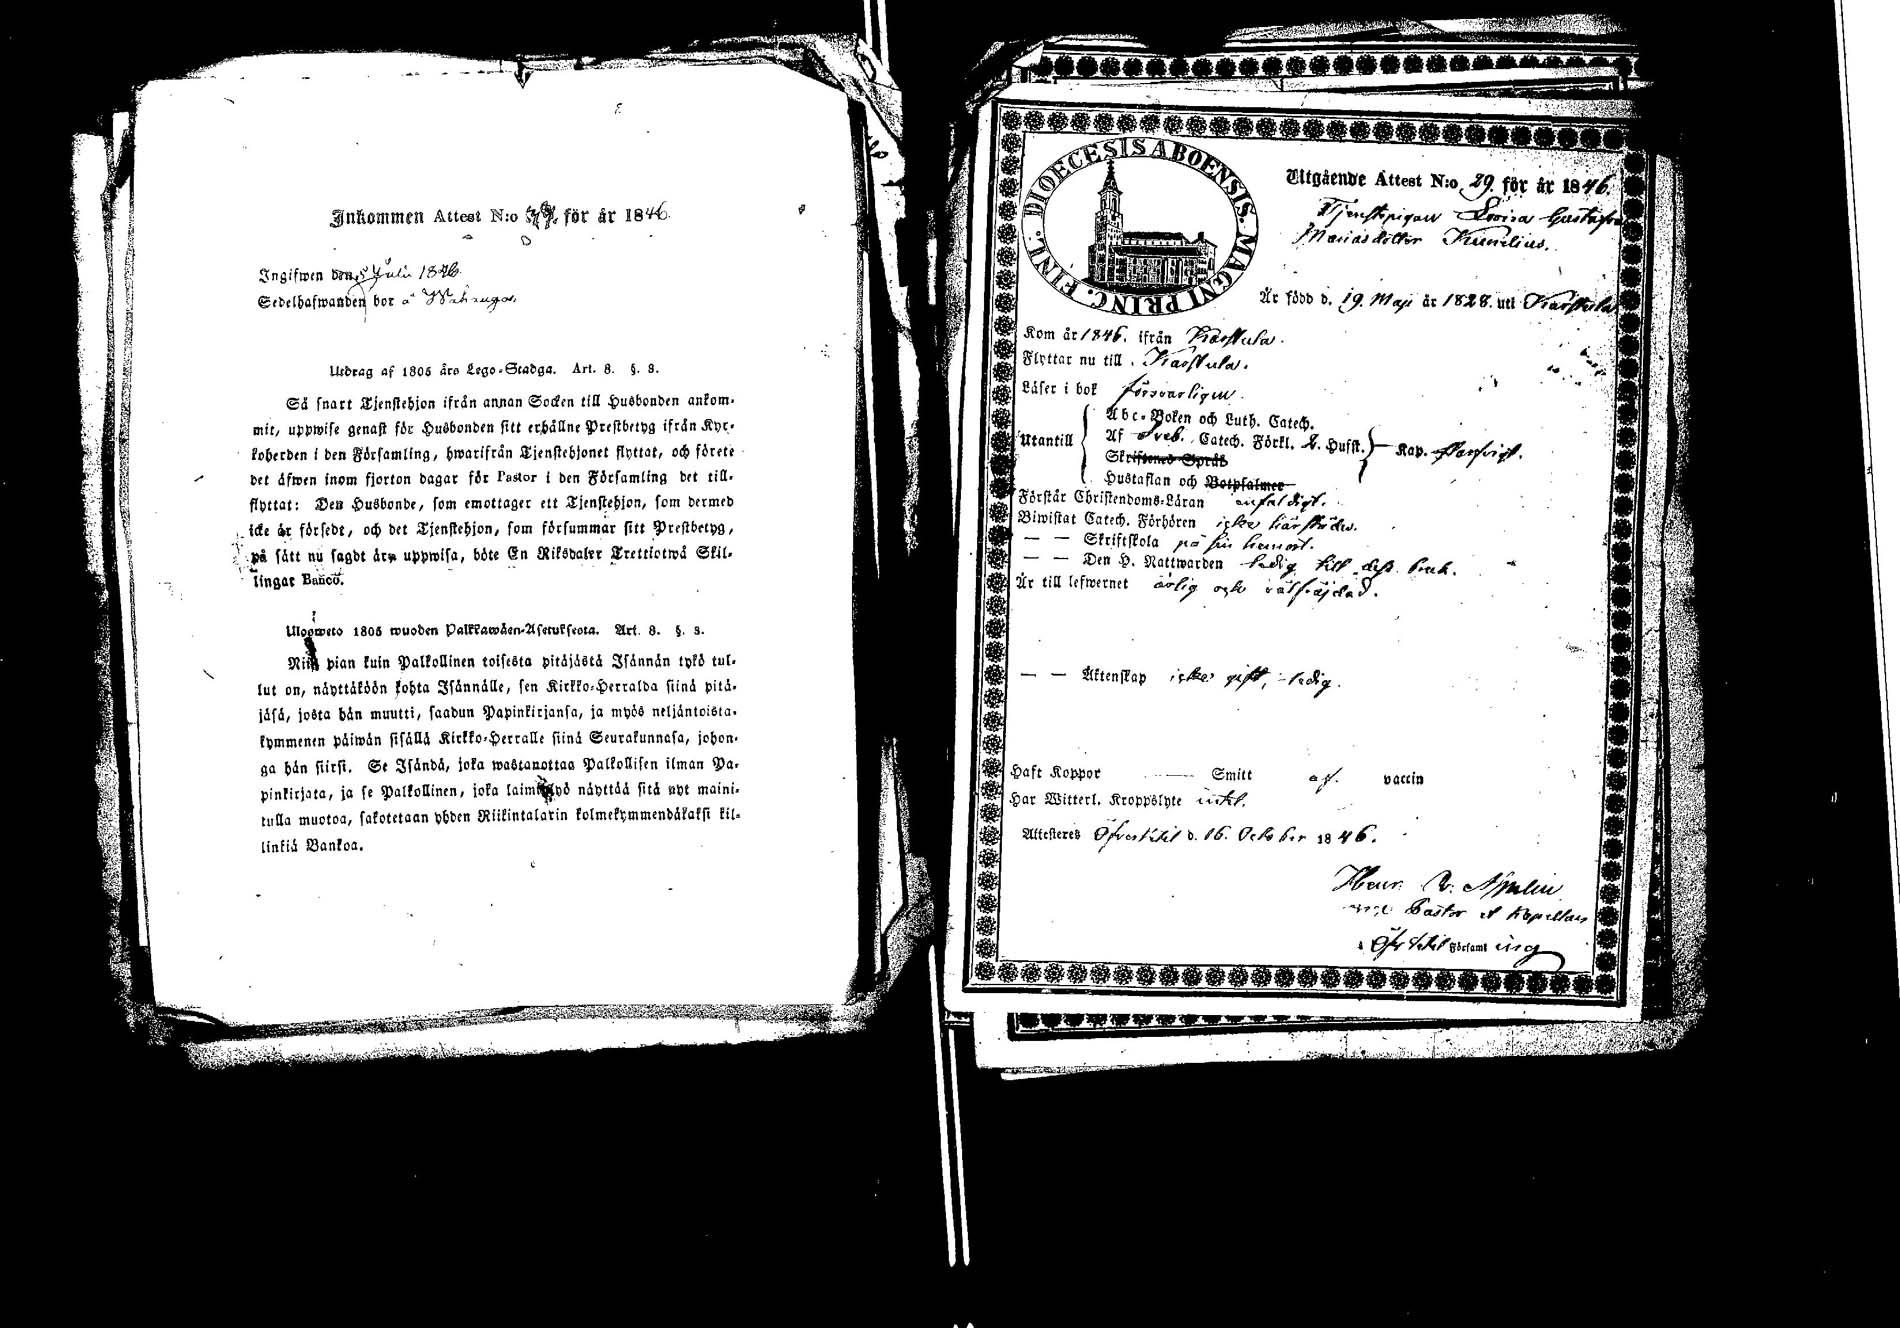 Inkommen Attest N:o för år 1846.
Ingifwen den 5 Juli 1846.
Sedelhafwanden bor å
Utdrag af 1805 års Lego-Stadga. Art. 8. §. 8.
Så snart Tjenstehjon ifrån annan Socken till Husbonden ankom-
mit, uppwise genast för Husbonden sitt erhållne Prestbetyg ifrån Kyr-
koherden i den Församling, hwarifrån Tjenstehjonet flyttat, och förete
det åfwen inom fjorton dagar för Pastor i den Församling det till-
flyttat: Den Husbonde, som emottager ett Tjenstehjon, som dermed
icke är försedt, och det Tjenstehjon, som försummar sitt Prestbetyg,
på sätt nu sagdt är, uppwisa, böte En Riksdaler Trettiotwå Skil-
lingar Banco.
Ulosweto 1805 wuoden Palkkawäen-Asetuksesta. Art. 8. §. 8.
Niin pian kuin Palkollinen toisesta pitäjästä Isännän tykö tul-
lut on, näyttäköön kohta Isännälle, sen Kirkko-Herralda siinä pitä-
jäsä, josta hän muutti, saadun Papinkirjansa, ja myös neljäntoista-
kymmenen päiwän sisällä Kirkko-Herralle siinä Seurakunnasa, johon-
ga hän siirsi. Se Isändä, joka wastanottaa Palkollisen ilman Pa-
pinkirjata, ja se Palkollinen, joka laiminlyö näyttää sitä nyt maini-
tulla muotoa, sakotetaan yhden Riikintalarin kolmekymmendäkaksi kil-
linkiä Bankoa.
DIOECESIS ABOENSIS. MAGNI PRINC. FINL.
Utgående Attest N:o 29. för år 1846.
Tjenstepigan Lovisa Gustafva
Mariasdotter Kumlius.
Är född d. 19. Maji år 1828. uti Karstula
Kom år 1846. ifrån Karstula.
Flyttar nu till Karstula.
Läser i bok försvarligen.
Utantill
Abc-Boken och Luth. Catech.
Af Sveb. Catech. Förkl. 2. Hufst. Kap.
Skriftenes Språk
Hustaflan och Botpsalmer
Förstår Christendoms-Läran enfaldigt.
Biwistat Catech. Förhören icke härstädes.
— — Skriftskola på sin hemort.
— — Den H. Nattwarden ledig till dess bruk.
Är till lefwernet ärlig och välfräjdad.
— — Äktenskap icke gift, ledig.
Haft Koppor — Smitt af vaccin
Har Witterl. Kroppslyte intet.
Attesteras Öfvertitel d. 16. October 1846.
Pastor et Kapellan
i Församling